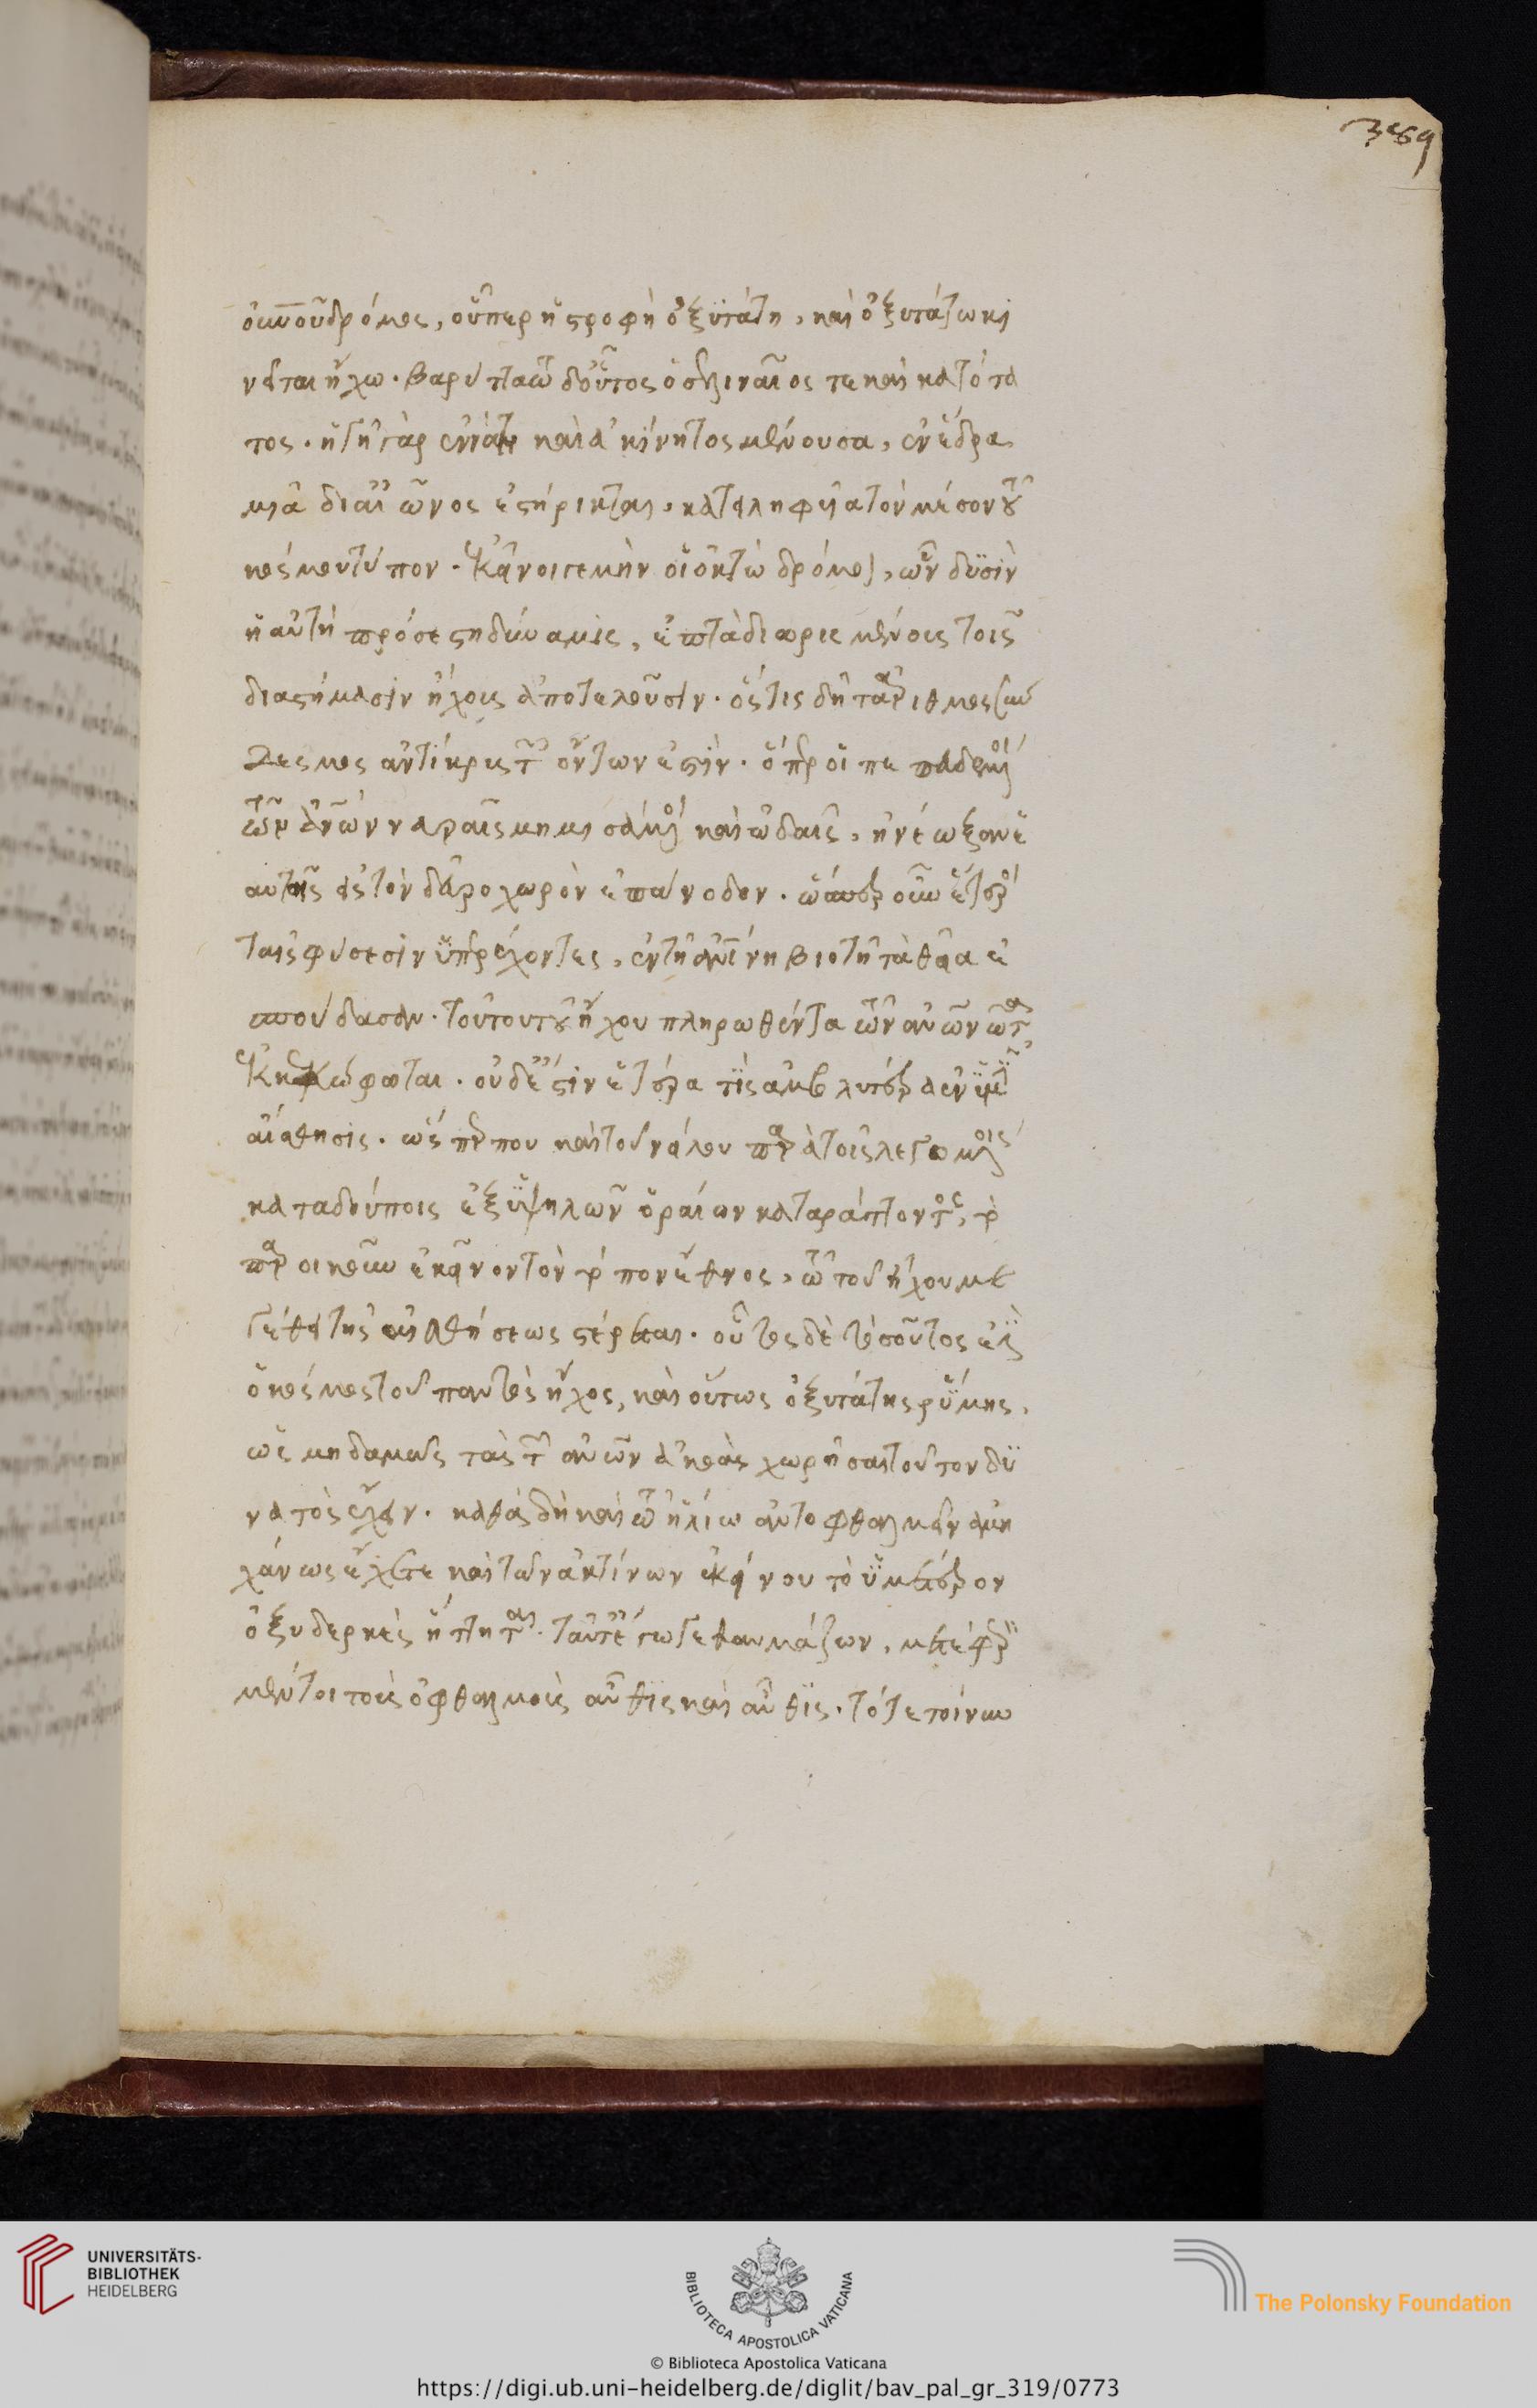 ὀυνοῦ δρόμος, οὗπερ ἡ στροφὴ ὀξυτάτη, καὶ ὀξυτάτω κι
νεῖται ἤχω. βαρυτάτω δ' οὗτος ὁ σεληναῖος τε καὶ κατότα
τος. ἡ γῆ γὰρ ἐννάτη καὶ ἀκίνητος μένουσα, ἐν ἕδρα
μιᾶ δι' αἰῶνος ἐστήρικται, κατειληφυῖα τὸν μέσον τοῦ
κόσμου τύπον. ἐκεῖνοι γε μὴν οἱ ὀκτὼ δρόμοι, ὧν δυσὶν
ἡ αὐτὴ πρόσεστι δύναμις, ἑπτὰ διωρισμένους τοῖς
διαστήμασιν ἤχους ἀποτελοῦσιν. ὅστις δὴ τἀριθμὸς συν
δεσμος ἀντίκρυς τῶν ὄντων ἐστίν. ὅπερ οἱ πεπαιδευμένοι
τῶν ἀνων νευραῖς μιμησάμενοι καὶ ὠδαῖς, ἠνέωξαν ἑ
αυτοῖς εἰς τὸν δεῦρο χωρὸν ἐπάνοδον. ὥσπερ οὖν ἕτεροι
ταῖς φύσεσιν ὑπερέχοντες, ἐν τῆ ἀνίνη βιοτῆ τὰ θεῖα ἐ
σπούδασαν. τούτου τοῦ ἤχου πληρωθέντα τῶν ἀνων ὦτα
ἐκκεκώφωται. οὐδ' ἔστιν ἑτέρα τίς ἀμβλυτέρα ἐν ὑμῖν
αἴσθησις. ὥσπερ που καὶ τοῦ νείλου παρὰ τοῖς λεγομένοις
καταδούποις ἐξ ὑψηλῶν ὀραίων καταράττοντος, τὸ
παροικοῦν ἐκεῖνον τὸν τόπον ἔθνος, τῶ τοῦ ἤχου με
γέθει τῆς αἰσθήσεως στέρεται. οὗτος δὲ τοσοῦτος ἐστὶν
ὁ κόσμος τοῦ παντὸς ἦχος, καὶ οὕτως ὀξυτάτης ῥύμης,
ὡς μηδαμοῦ τὰς τῶν ἀνων ἀκοὰς χωρῆσαι τοῦτον δυ
νατὸς ἔχειν. καθὰ δὴ καὶ τῶ ἡλίω ἀντοφθαλμεῖν ἀμη
χάνως ἔχετε καὶ τῶν ἀκτίνων ἐκείνου τὸ ὑμέτερον
ὀξυδερκὲς ἥττηται. ταῦτ' ἔγωγε θαυμάζων, μετέφερ
μέντοι τοὺς ὀφθαλμοὺς αὖθις καὶ αὖθις. τότε τοίνυν
359
UNIVERSITÄTS-
BIBLIOTHEK
HEIDELBERG
BIBLIOTECA APOSTOLICA VATICANA
The Polonsky Foundation
© Biblioteca Apostolica Vaticana
https://digi.ub.uni-heidelberg.de/diglit/bav_pal_gr_319/0773